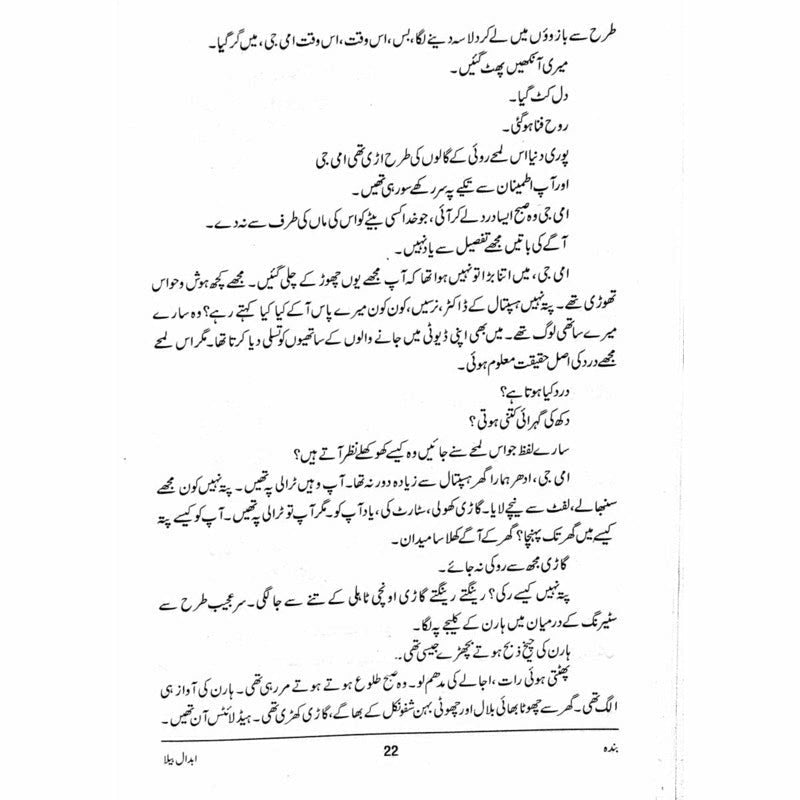 طرح سے بازوؤں میں لے کر دلاسہ دینے لگا، بس، اس وقت، اس وقت امی جی، میں گر گیا۔
میری آنکھیں پھٹ گئیں۔
دل کٹ گیا۔
روح فنا ہوگئی۔
پوری دنیا اس لمحے روئی کے گالوں کی طرح اڑی تھی امی جی
اور آپ اطمینان سے تکیے پہ سر رکھے سو رہی تھیں۔
امی جی وہ صبح ایسا درد لے کر آئی، جو خدا کسی بیٹے کو اس کی ماں کی طرف سے نہ دے۔
آگے کی باتیں مجھے تفصیل سے یاد نہیں۔
امی جی، میں اتنا بڑا تو نہیں ہوا تھا کہ آپ مجھے یوں چھوڑ کے چلی گئیں۔ مجھے کچھ ہوش و حواس
تھوڑی تھے۔ پتہ نہیں ہسپتال کے ڈاکٹر، نرسیں، کون کون میرے پاس آکے کیا کیا کہتے رہے؟ وہ سارے
میرے ساتھی لوگ تھے۔ میں بھی اپنی ڈیوٹی میں جانے والوں کے ساتھیوں کو تسلی دیا کرتا تھا۔ مگر اس لمحے
مجھے درد کی اصل حقیقت معلوم ہوئی۔
درد کیا ہوتا ہے؟
دکھ کی گہرائی کتنی ہوتی؟
سارے لفظ جو اس لمحے سنے جائیں وہ کیسے کھوکھلے نظر آتے ہیں؟
امی جی، ادھر ہمارا گھر ہسپتال سے زیادہ دور نہ تھا۔ آپ وہیں ٹرالی پہ تھیں۔ پتہ نہیں کون مجھے
سنبھالے، لفٹ سے نیچے لایا۔ گاڑی کھولی، سٹارٹ کی، یاد آپ کو۔ مگر آپ تو ٹرالی پہ تھیں۔ آپ کو کیسے پتہ
کیسے میں گھر تک پہنچا؟ گھر کے آگے کھلا سا میدان۔
گاڑی مجھ سے روکی نہ جائے۔
پتہ نہیں کیسے رکی؟ رینگتے رینگتے گاڑی اونچی ٹاہلی کے تنے سے جا لگی۔ سر عجیب طرح سے
سٹیرنگ کے درمیان میں ہارن کے کلیجے پہ لگا۔
ہارن کی چیخ ذبح ہوتے بچھڑے جیسی تھی۔
پھٹتی ہوئی رات، اجالے کی مدھم لو۔ وہ صبح طلوع ہوتے ہوتے مر رہی تھی۔ ہارن کی آواز ہی
الگ تھی۔ گھر سے چھوٹا بھائی بلال اور چھوٹی بہن شفو نکل کے بھاگے، گاڑی کھڑی تھی۔ ہیڈ لائٹس آن تھیں۔
بندہ 22 ابدال بیلا